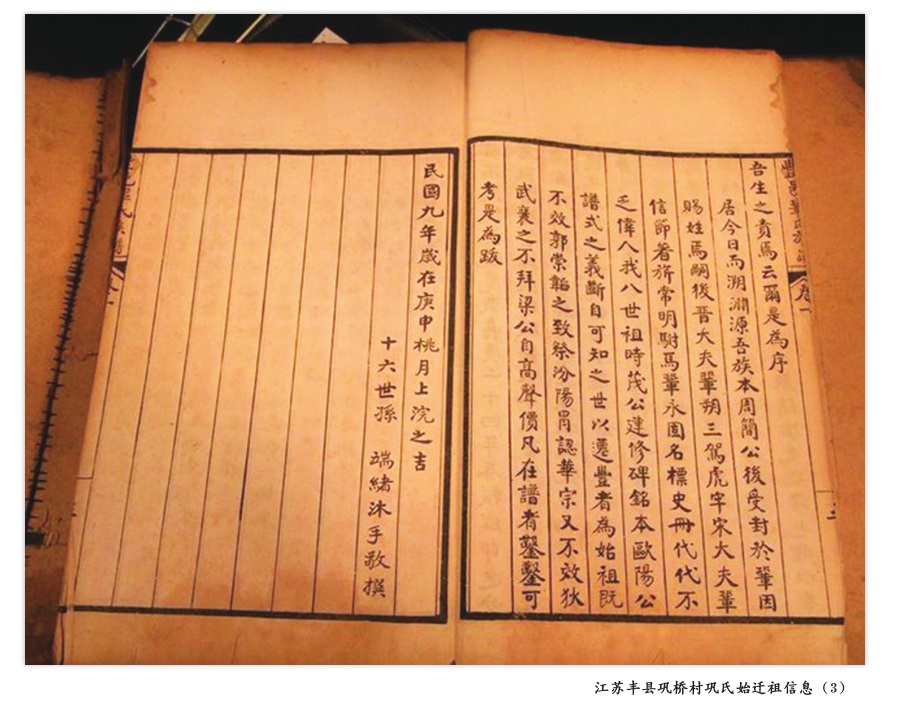 豐邑鞏氏族譜 卷一
吾生之責焉云爾是為序
居今日而溯淵源吾族本周簡公後受對於鞏因
賜姓焉嗣後晉大夫鞏朔三駕虎牢宋大夫鞏
信節著旂常明駙馬鞏永固名標史冊代代不
乏偉人我八世祖時茂公建修碑銘本歐陽公
譜式之義斷自可知之世以遷豐者為始祖既
不效郭崇韜之致祭汾陽冒認華宗又不效狄
武襄之不拜梁公自高聲價凡在譜者鑿鑿可
考是為跋
民國九年歲在庚申桃月上浣之吉
十六世孫 端緒沐手敬撰
江苏丰县巩桥村巩氏始迁祖信息（3）